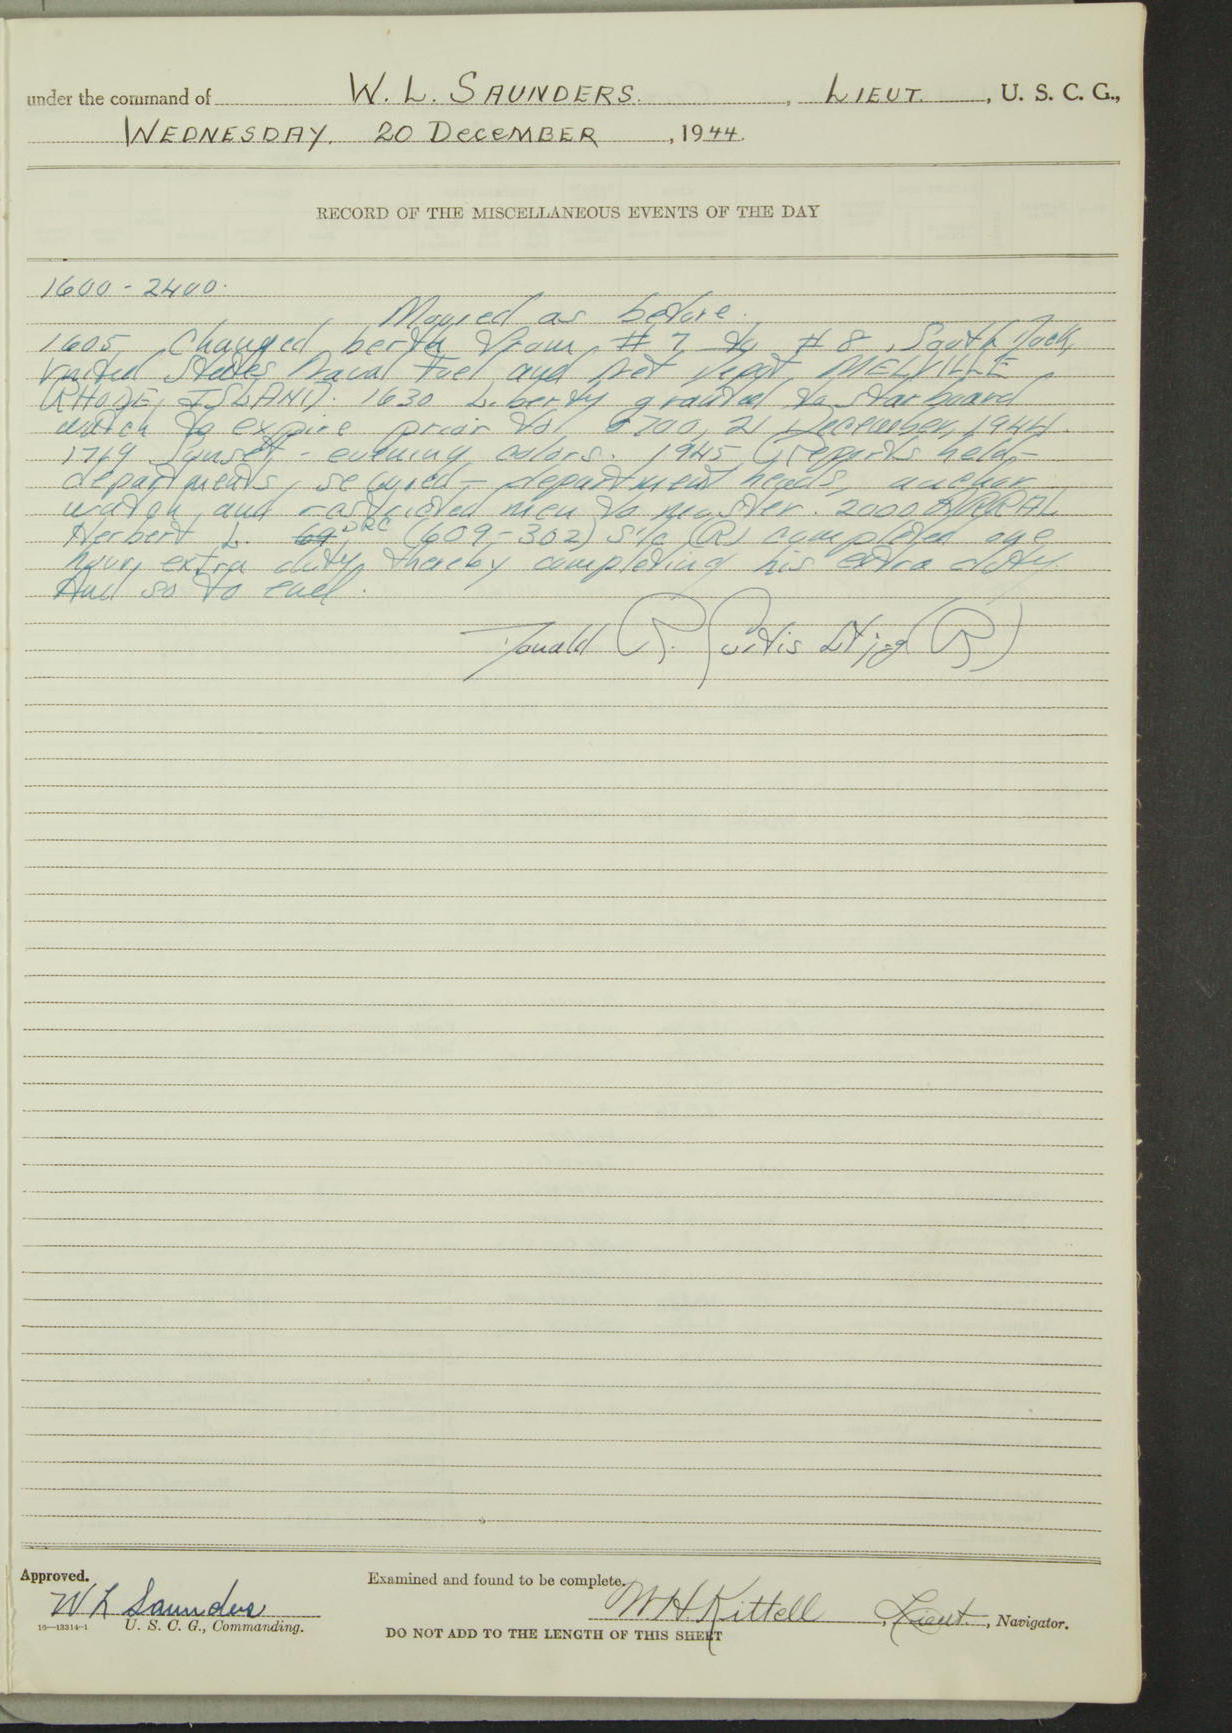 under the command of W. L. SAUNDERS. , LIEUT. , U. S. C. G.,
WEDNESDAY. 20 DECEMBER , 1944.
RECORD OF THE MISCELLANEOUS EVENTS OF THE DAY
1600 - 2400.
Moored as before.
1605 Changed berth from # 7 to # 8, South Dock,
United States Naval Fuel and Net Depot, MELVILLE
RHODE, ISLAND. 1630 Liberty granted to starboard
watch to expire prior to 0700, 21 December, 1944.
Sunset, - evening colors. 1945 8 reports held, -
departments, secured - department heads, anchor
watch, and restricted men to muster. 2000
Herbert L. DRC (609-302) S1/c (R) completed one
hour, extra duty, thereby completing his extra duty.
And so to end.
Donald R. Curtis Lt jg (R)
Approved.
W L Saunders
U. S. C. G., Commanding.
16—13314-1
Examined and found to be complete.
W. H. Kittell , Lieut. , Navigator.
DO NOT ADD TO THE LENGTH OF THIS SHEET